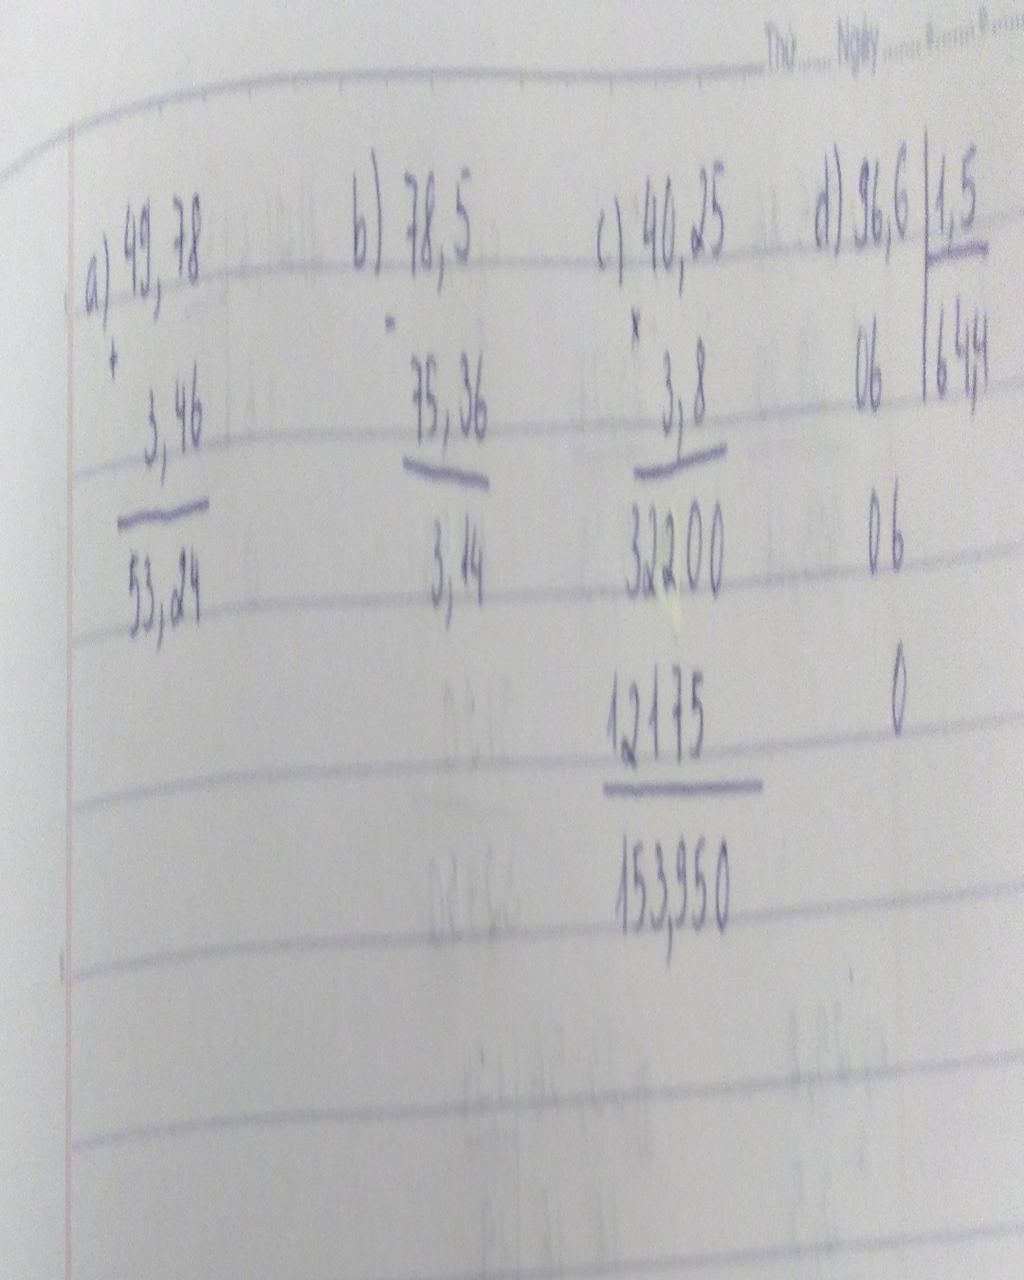 Thứ ..... Ngày ..... / ..... / .....
a) 49,78
+
3,46
53,24
b) 78,5
-
75,36
3,14
c) 40,25
x
3,8
32200
12175
153,950
d) 96,6 | 1,5
06 | 64,4
06
0